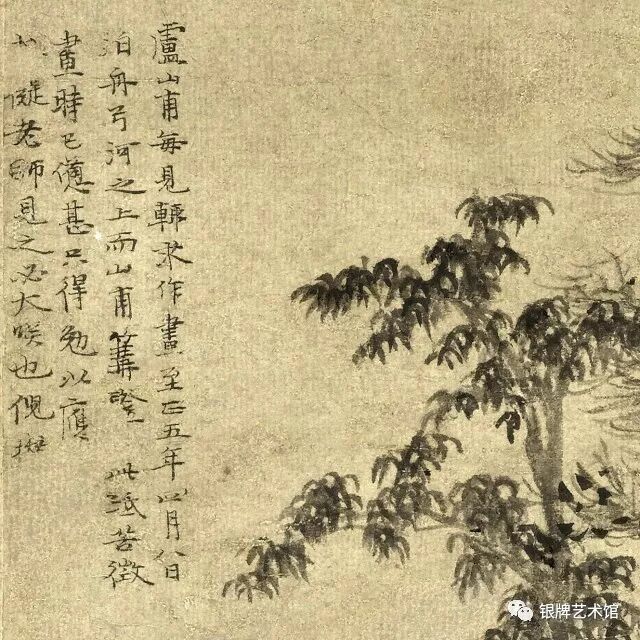 盧山甫每見輙求作畫至正五年四月八日
泊舟弓河之上而山甫篝燈出此紙苦徵
畫時已憊甚只得勉以應
大癡老師見之必大笑也倪瓚
银牌艺术馆